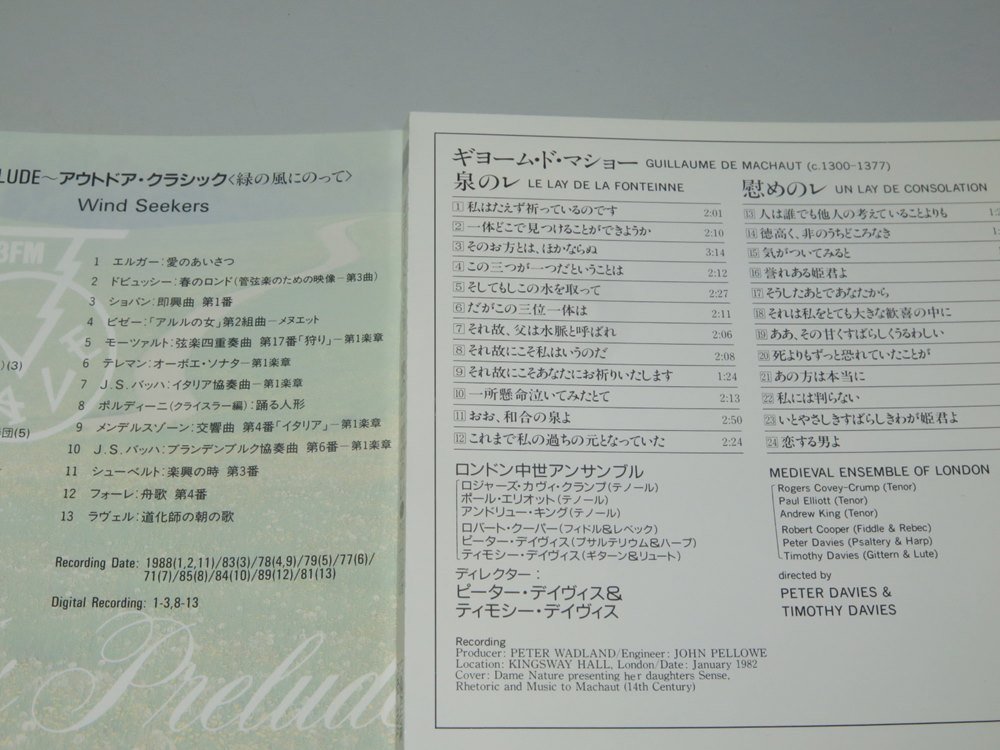 LUDE～アウトドア・クラシック〈緑の風にのって〉
Wind Seekers
3FM
1 エルガー：愛のあいさつ
2 ドビュッシー：春のロンド(管弦楽のための映像－第3曲)
3 ショパン：即興曲 第1番
4 ビゼー：「アルルの女」第2組曲－メヌエット
5 モーツァルト：弦楽四重奏曲 第17番「狩り」－第1楽章
6 テレマン：オーボエ・ソナタ－第1楽章
7 J.S.バッハ：イタリア協奏曲－第1楽章
8 ポルディーニ(クライスラー編)：踊る人形
9 メンデルスゾーン：交響曲 第4番「イタリア」－第1楽章
10 J.S.バッハ：ブランデンブルク協奏曲 第6番－第1楽章
11 シューベルト：楽興の時 第3番
12 フォーレ：舟歌 第4番
13 ラヴェル：道化師の朝の歌
)(3)
団(5)
Recording Date: 1988(1,2,11)/83(3)/78(4,9)/79(5)/77(6)/
71(7)/85(8)/84(10)/89(12)/81(13)
Digital Recording: 1-3,8-13
Prelude
ギヨーム・ド・マショー GUILLAUME DE MACHAUT (c.1300-1377)
泉のレ LE LAY DE LA FONTEINNE
1 私はたえず祈っているのです 2:01
2 一体どこで見つけることができようか 2:10
3 そのお方とは、ほかならぬ 3:14
4 この三つが一つだということは 2:12
5 そしてもしこの水を取って 2:27
6 だがこの三位一体は 2:11
7 それ故、父は水脈と呼ばれ 2:06
8 それ故にこそ私はいうのだ 2:08
9 それ故にこそあなたにお祈りいたします 1:24
10 一所懸命泣いてみたとて 2:13
11 おお、和合の泉よ 2:50
12 これまで私の過ちの元となっていた 2:24
慰めのレ UN LAY DE CONSOLATION
13 人は誰でも他人の考えていることよりも
14 徳高く、非のうちどころなき
15 気がついてみると
16 誉れある姫君よ
17 そうしたあとであなたから
18 それは私をとても大きな歓喜の中に
19 ああ、その甘くすばらしくうるわしい
20 死よりもずっと恐れていたことが
21 あの方は本当に
22 私には判らない
23 いとやさしきすばらしきわが姫君よ
24 恋する男よ
ロンドン中世アンサンブル
ロジャーズ・カヴィ・クランプ(テノール)
ポール・エリオット(テノール)
アンドリュー・キング(テノール)
ロバート・クーパー(フィドル&レベック)
ピーター・デイヴィス(プサルテリウム&ハープ)
ティモシー・デイヴィス(ギターン&リュート)
ディレクター：
ピーター・デイヴィス&
ティモシー・デイヴィス
MEDIEVAL ENSEMBLE OF LONDON
Rogers Covey-Crump (Tenor)
Paul Elliott (Tenor)
Andrew King (Tenor)
Robert Cooper (Fiddle & Rebec)
Peter Davies (Psaltery & Harp)
Timothy Davies (Gittern & Lute)
directed by
PETER DAVIES &
TIMOTHY DAVIES
Recording
Producer: PETER WADLAND/Engineer: JOHN PELLOWE
Location: KINGSWAY HALL, London/Date: January 1982
Cover: Dame Nature presenting her daughters Sense,
Rhetoric and Music to Machaut (14th Century)